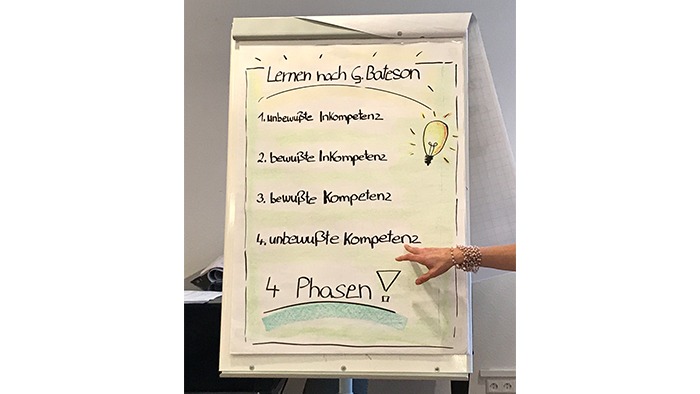 Lernen nach G. Bateson
1. unbewußte Inkompetenz
2. bewußte Inkompetenz
3. bewußte Kompetenz
4. unbewußte Kompetenz
4 Phasen!